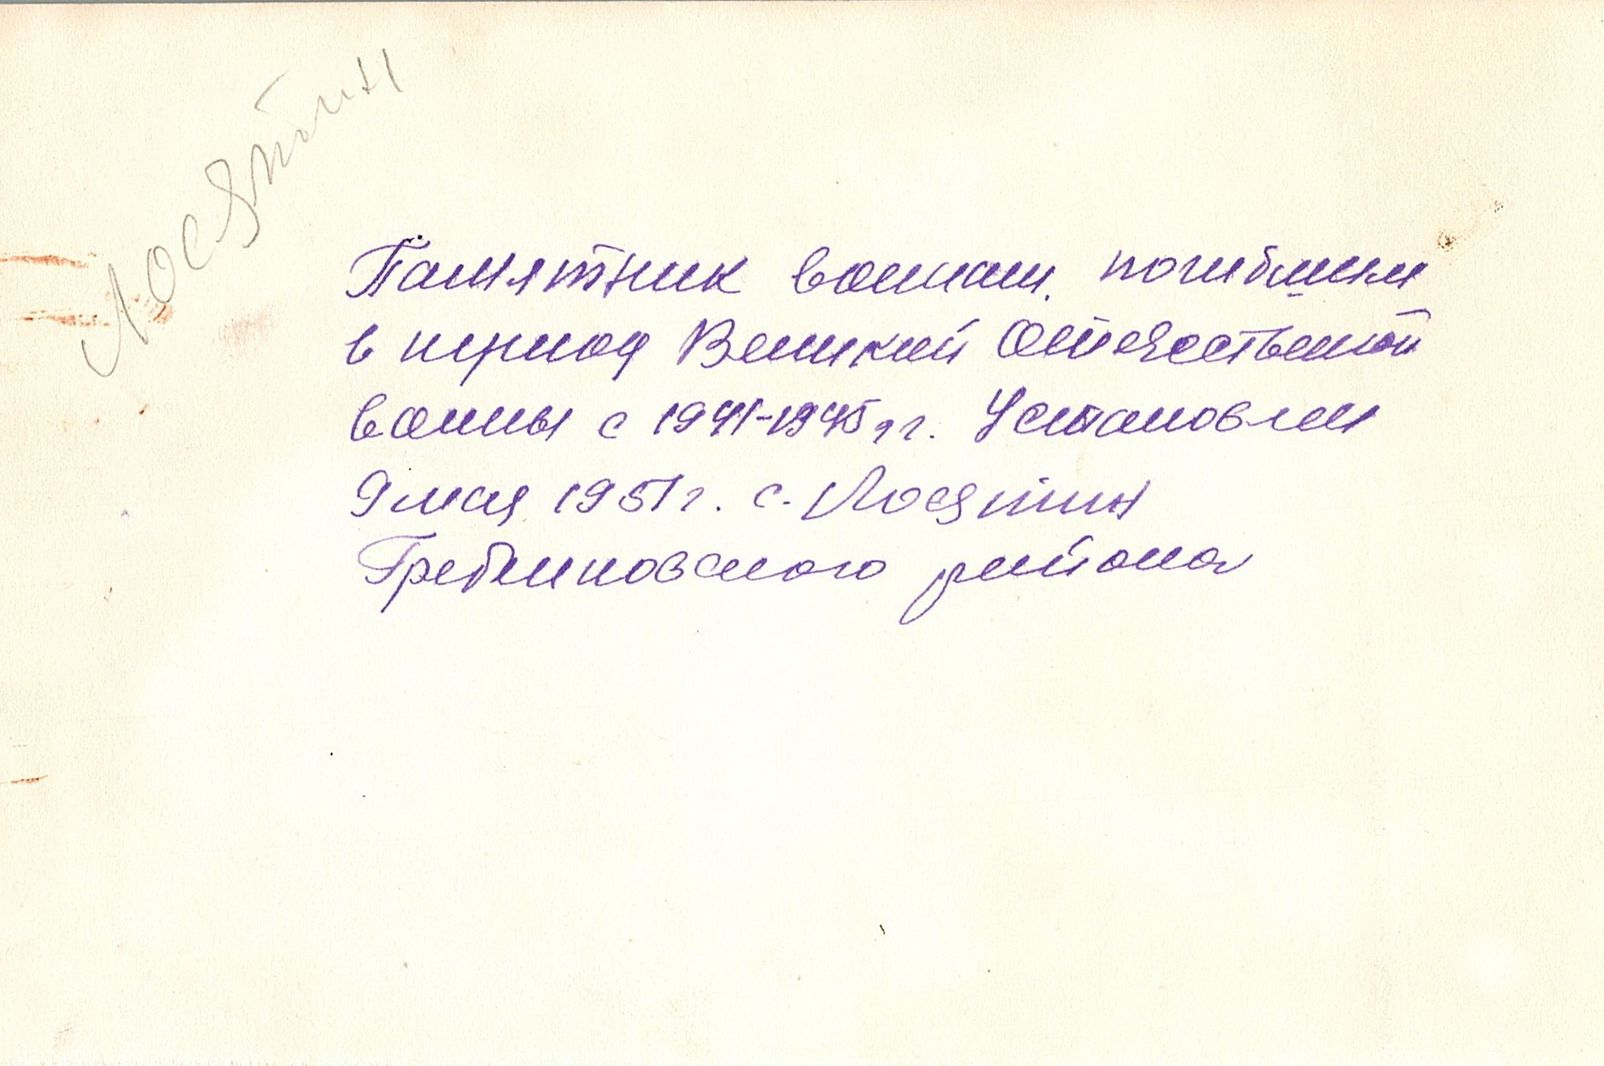 Лосятин
Памятник воинам, погибшим
в период Великой Отечественной
войны с 1941-1945 гг. Установлен
9 мая 1951 г. с. Лосятин
Гребенковского района